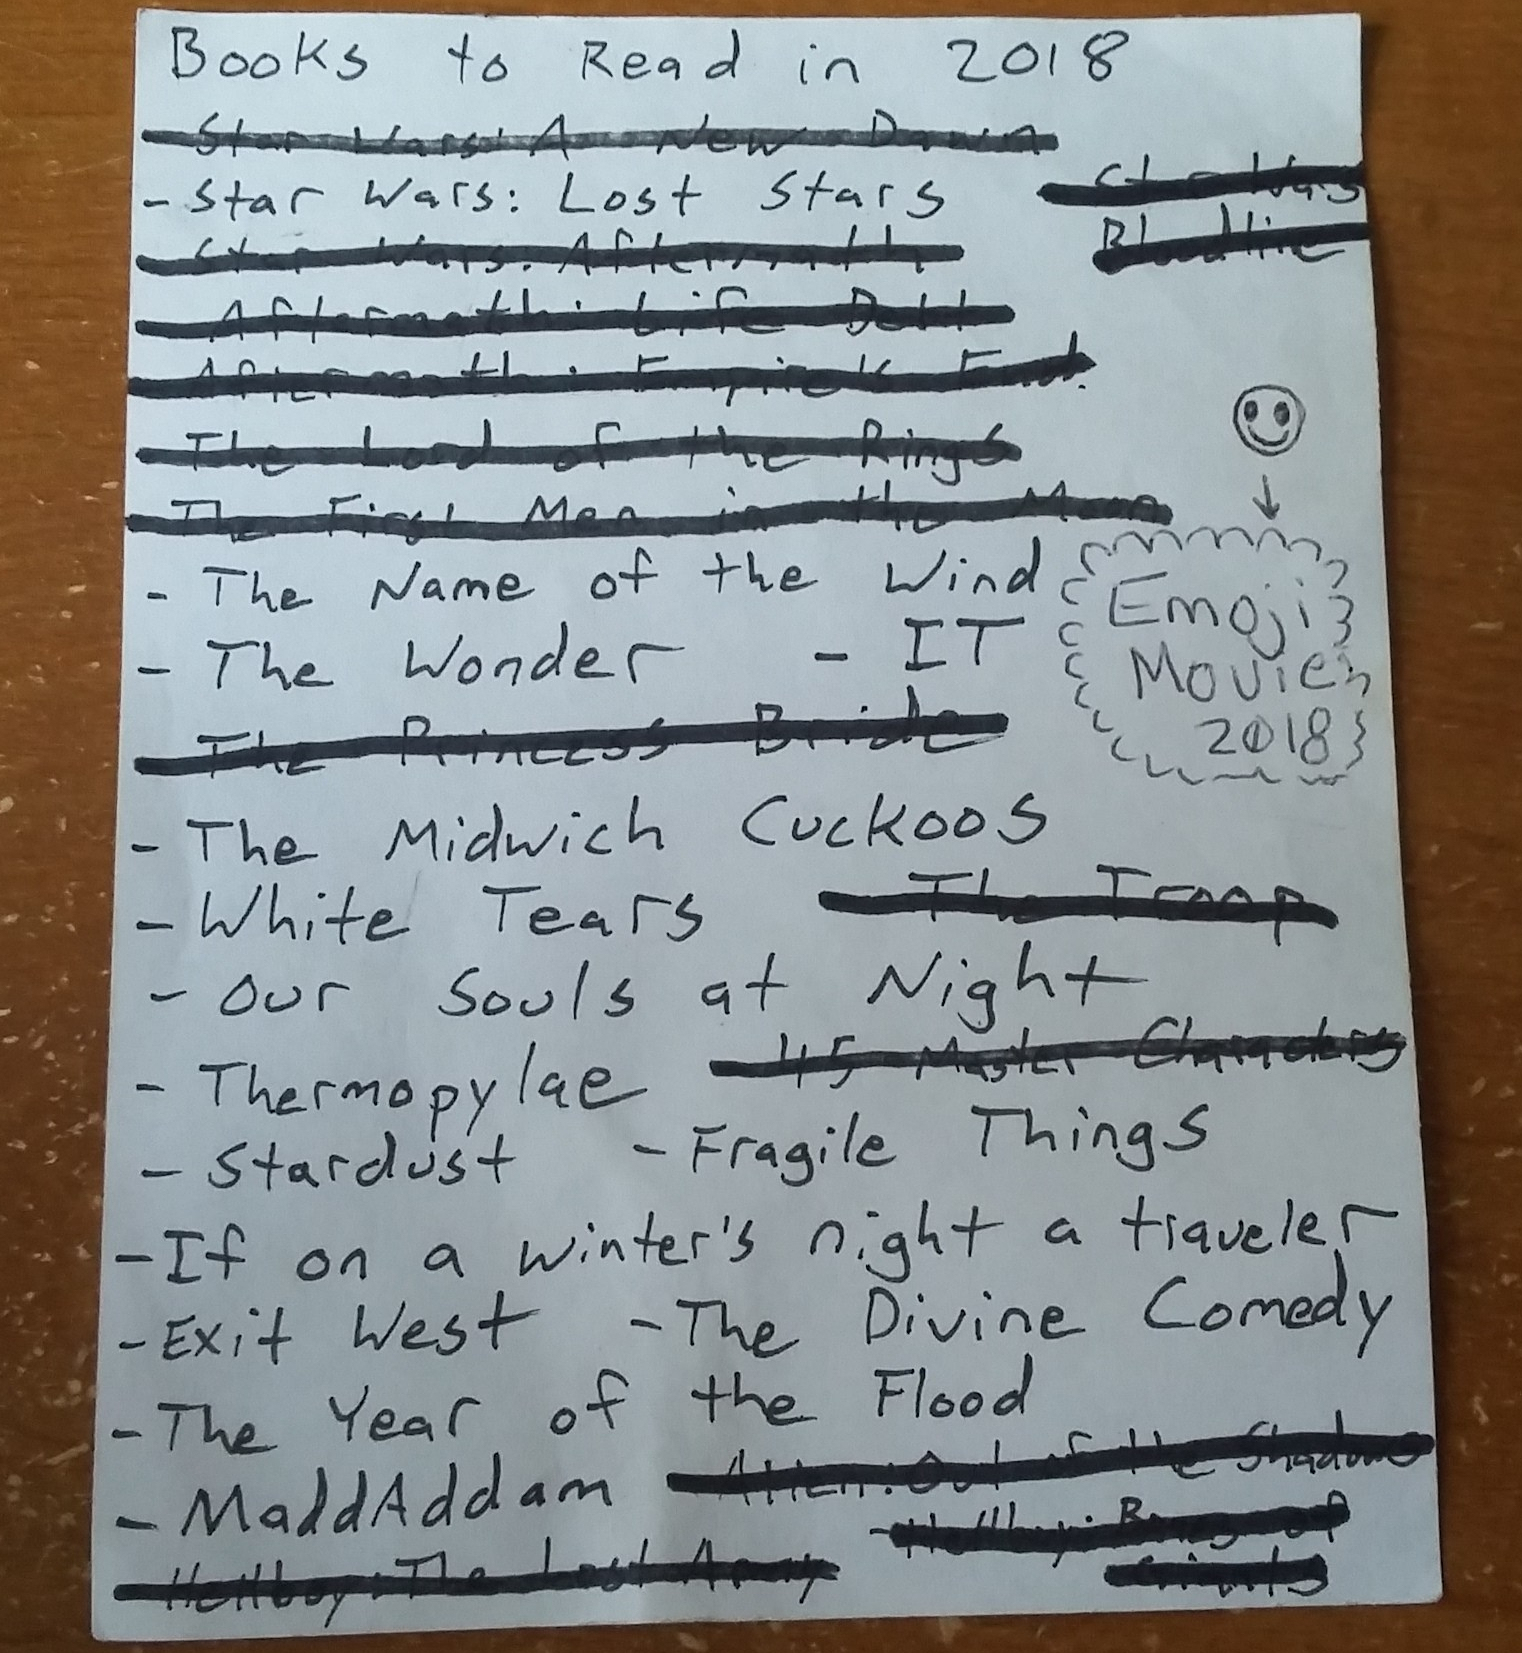 Books to Read in 2018
Star Wars: A New Dawn
- Star Wars: Lost Stars
Star Wars
Bloodline
Star Wars: Aftermath
Aftermath: Life Debt
Aftermath: Empire's End
The Lord of the Rings
The First Men in the Moon
- The Name of the Wind
- The Wonder - IT
Emoji
Movie
2018
The Princess Bride
- The Midwich Cuckoos
- White Tears
The Troop
- Our Souls at Night
- Thermopylae
45 Master Characters
- Stardust - Fragile Things
- If on a winter's night a traveler
- Exit West - The Divine Comedy
- The Year of the Flood
- MaddAddam
Alien: Out of the Shadows
Hellboy: The Lost Army
- Hellboy: Bones of
Giants